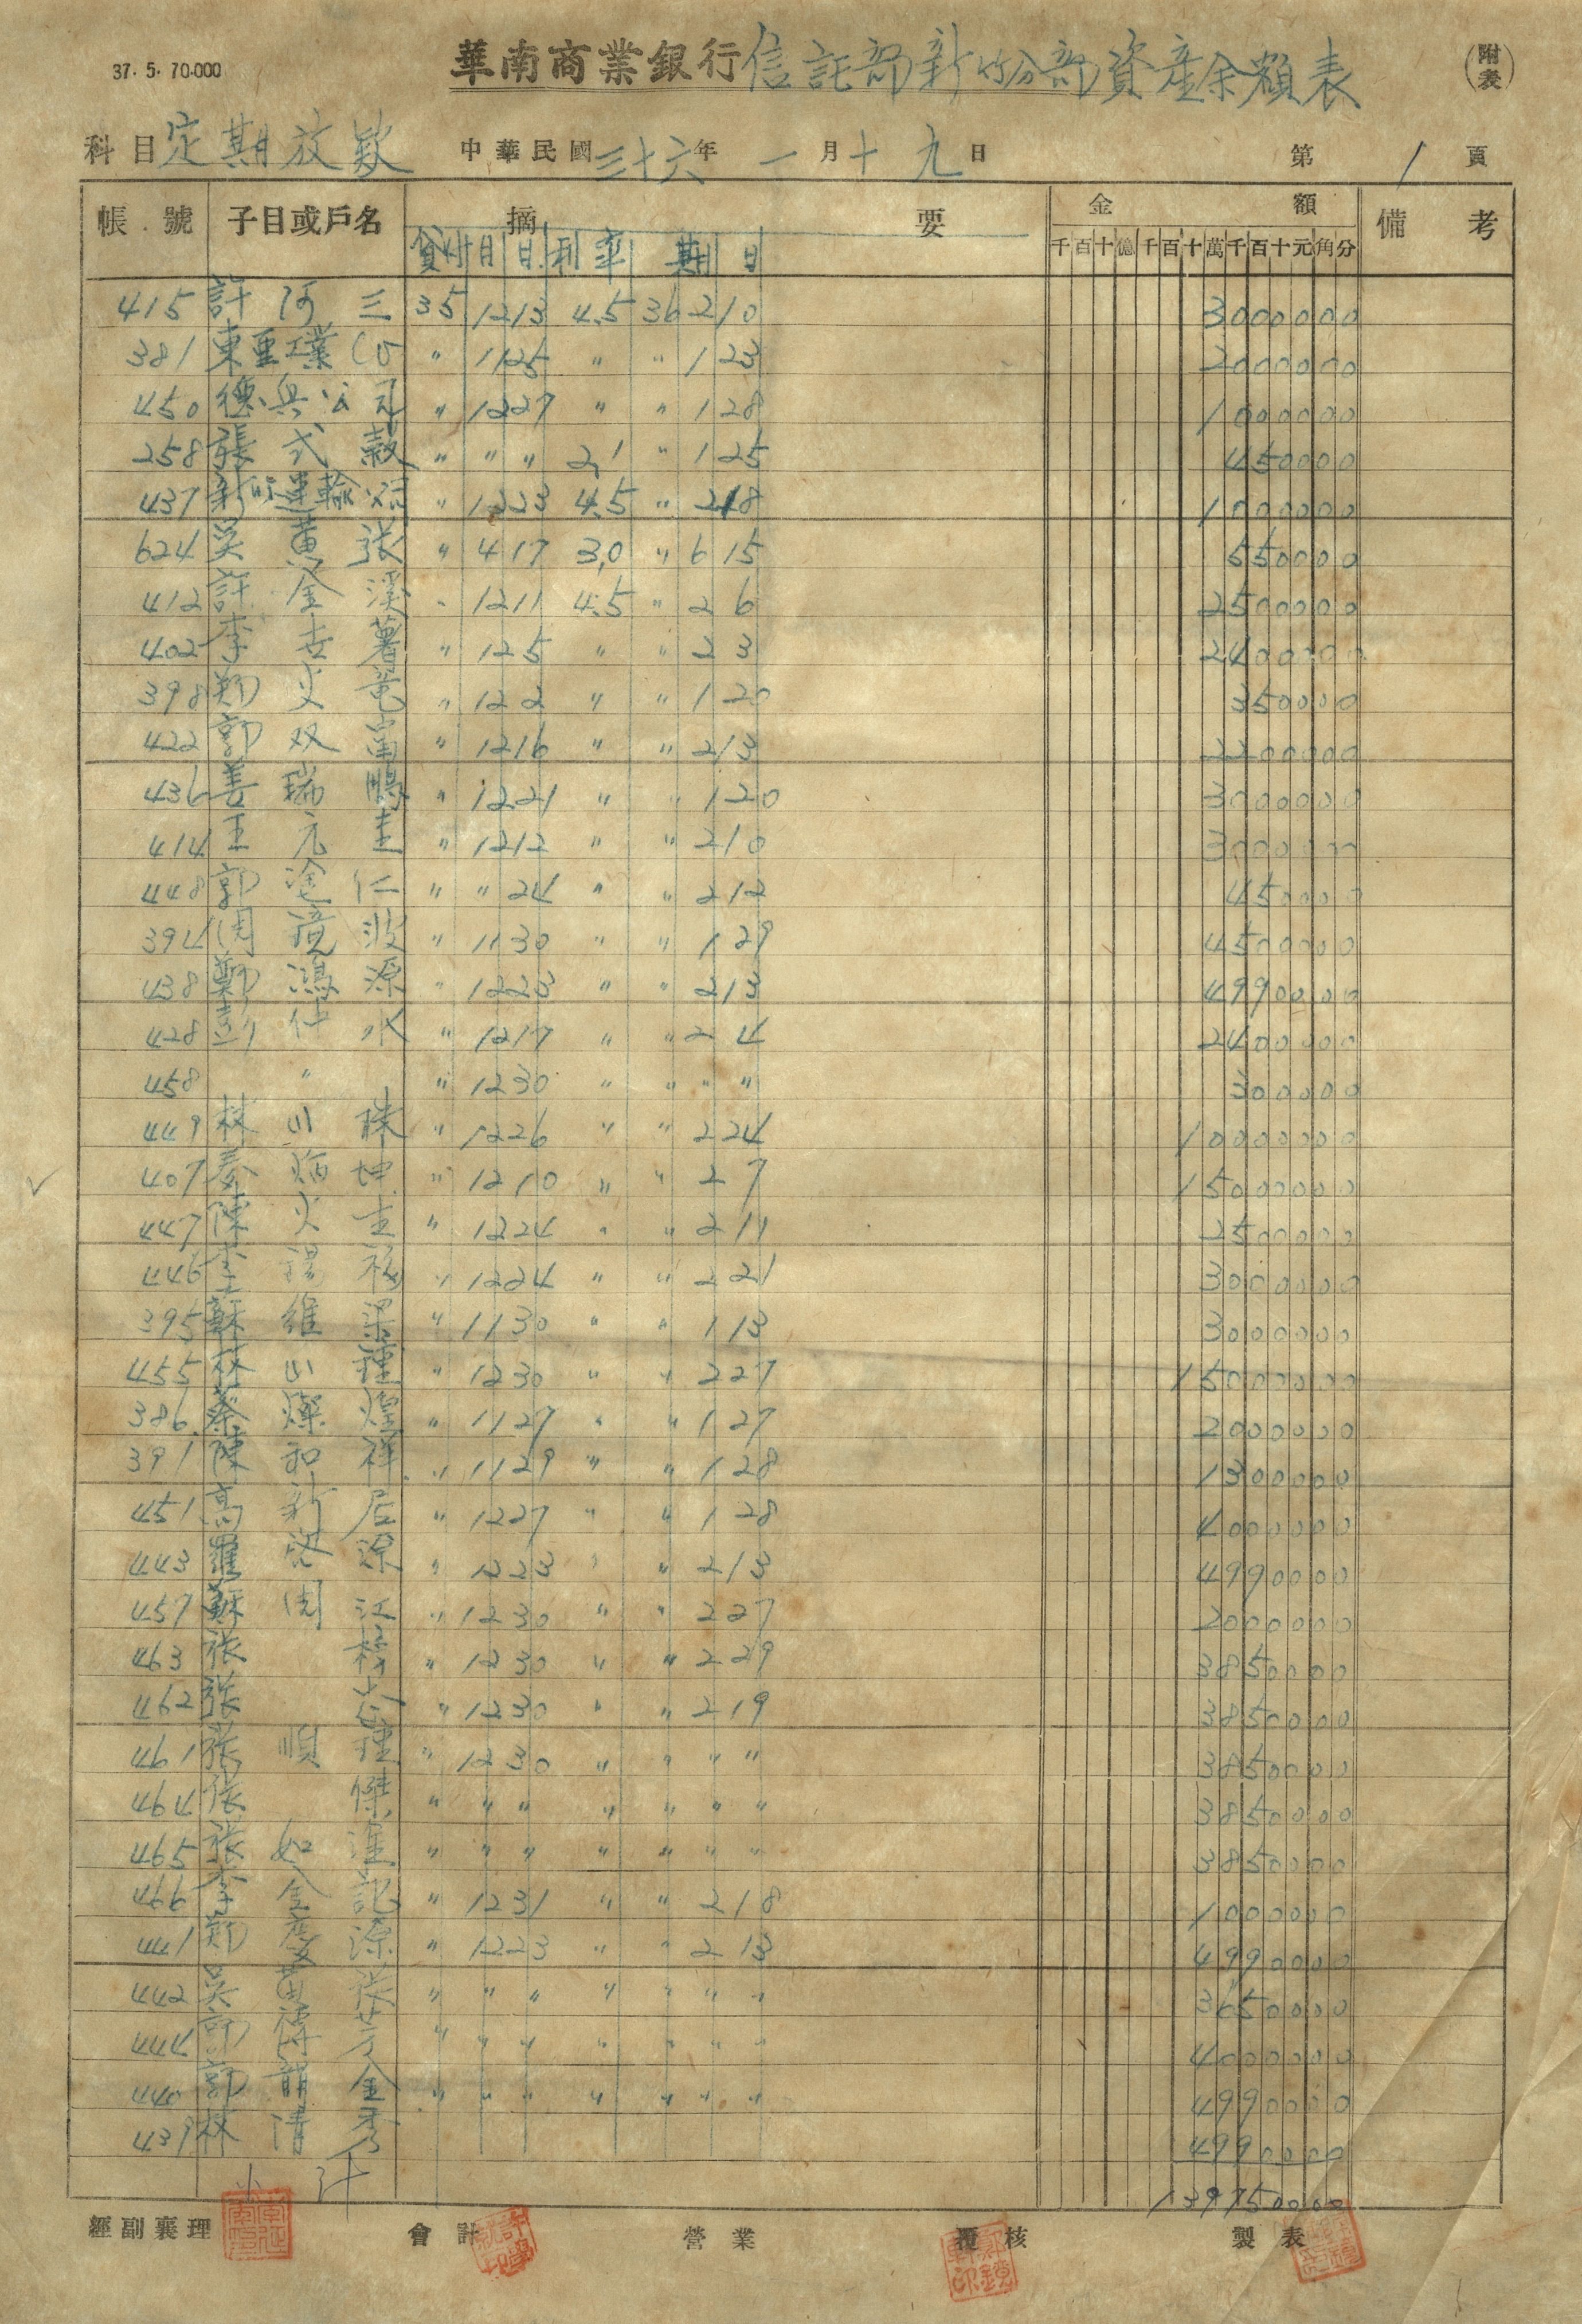 37. 5. 70.000
華南商業銀行信託部新竹分部資產余額表
(附表)
科目 定期放款 中華民國三十六年一月十九日 第1頁
帳號 子目或戶名 摘要 金額 備考
貸付月日 利率 期日 千百十億千百十萬千百十元角分
415 許河三 35 12 13 4.5 36 2 10 3000000
381 東亜工業 〃 11 25 〃 〃 1 23 2000000
450 德興公司 〃 12 27 〃 〃 1 28 1000000
258 張式穀 〃 〃 〃 2.1 〃 1 25 450000
437 新竹運輸 〃 12 23 4.5 〃 2 18 1000000
624 吳黄張 〃 4 17 3.0 〃 6 15 550000
412 許金溪 〃 12 11 4.5 〃 2 6 2500000
402 李 薯 〃 12 5 〃 〃 2 3 2400000
398 鄭火竜 〃 12 2 〃 〃 1 20 350000
422 郭双 〃 12 16 〃 〃 2 13 2200000
436 姜瑞鵬 〃 12 21 〃 〃 1 20 3000000
414 王元圭 〃 12 12 〃 〃 2 10 3000000
448 郭 仁 〃 〃 24 〃 〃 2 12 450000
394 周鏡波 〃 11 30 〃 〃 1 29 4500000
438 鄭鴻源 〃 12 23 〃 〃 2 13 4990000
428 彭什水 〃 12 17 〃 〃 2 4 2400000
458 〃 〃 12 30 〃 〃 〃 〃 300000
449 林山珠 〃 12 26 〃 〃 2 24 10000000
407 坤 〃 12 10 〃 〃 2 7 15000000
447 陳火圭 〃 12 24 〃 〃 2 11 2500000
446 李錫 〃 12 24 〃 〃 2 21 3000000
395 蘇維梁 〃 11 30 〃 〃 1 13 3000000
455 林山 〃 12 30 〃 〃 2 27 15000000
386 蔡燦煌 〃 11 27 〃 〃 1 27 2000000
391 陳和祥 〃 11 29 〃 〃 1 28 1300000
451 高新居 〃 12 27 〃 〃 1 28 4000000
443 羅 源 〃 12 23 〃 〃 2 13 4990000
457 蘇周江 〃 12 30 〃 〃 2 27 2000000
463 張 〃 12 30 〃 〃 2 29 3850000
462 張 〃 12 30 〃 〃 2 19 3850000
461 張順 〃 12 30 〃 〃 〃 〃 3850000
464 張傑 〃 〃 〃 〃 〃 〃 〃 3850000
465 張如 〃 〃 〃 〃 〃 〃 〃 3850000
466 李金記 〃 12 31 〃 〃 2 18 1000000
441 鄭慶源 〃 12 23 〃 〃 2 13 4990000
442 吳黄張 〃 〃 〃 〃 〃 〃 〃 3650000
444 芳 〃 〃 〃 〃 〃 〃 〃 4000000
440 郭 金 〃 〃 〃 〃 〃 〃 〃 4990000
439 林清秀 4990000
小計 139750000
經副襄理 會計 營業 覆核 製表